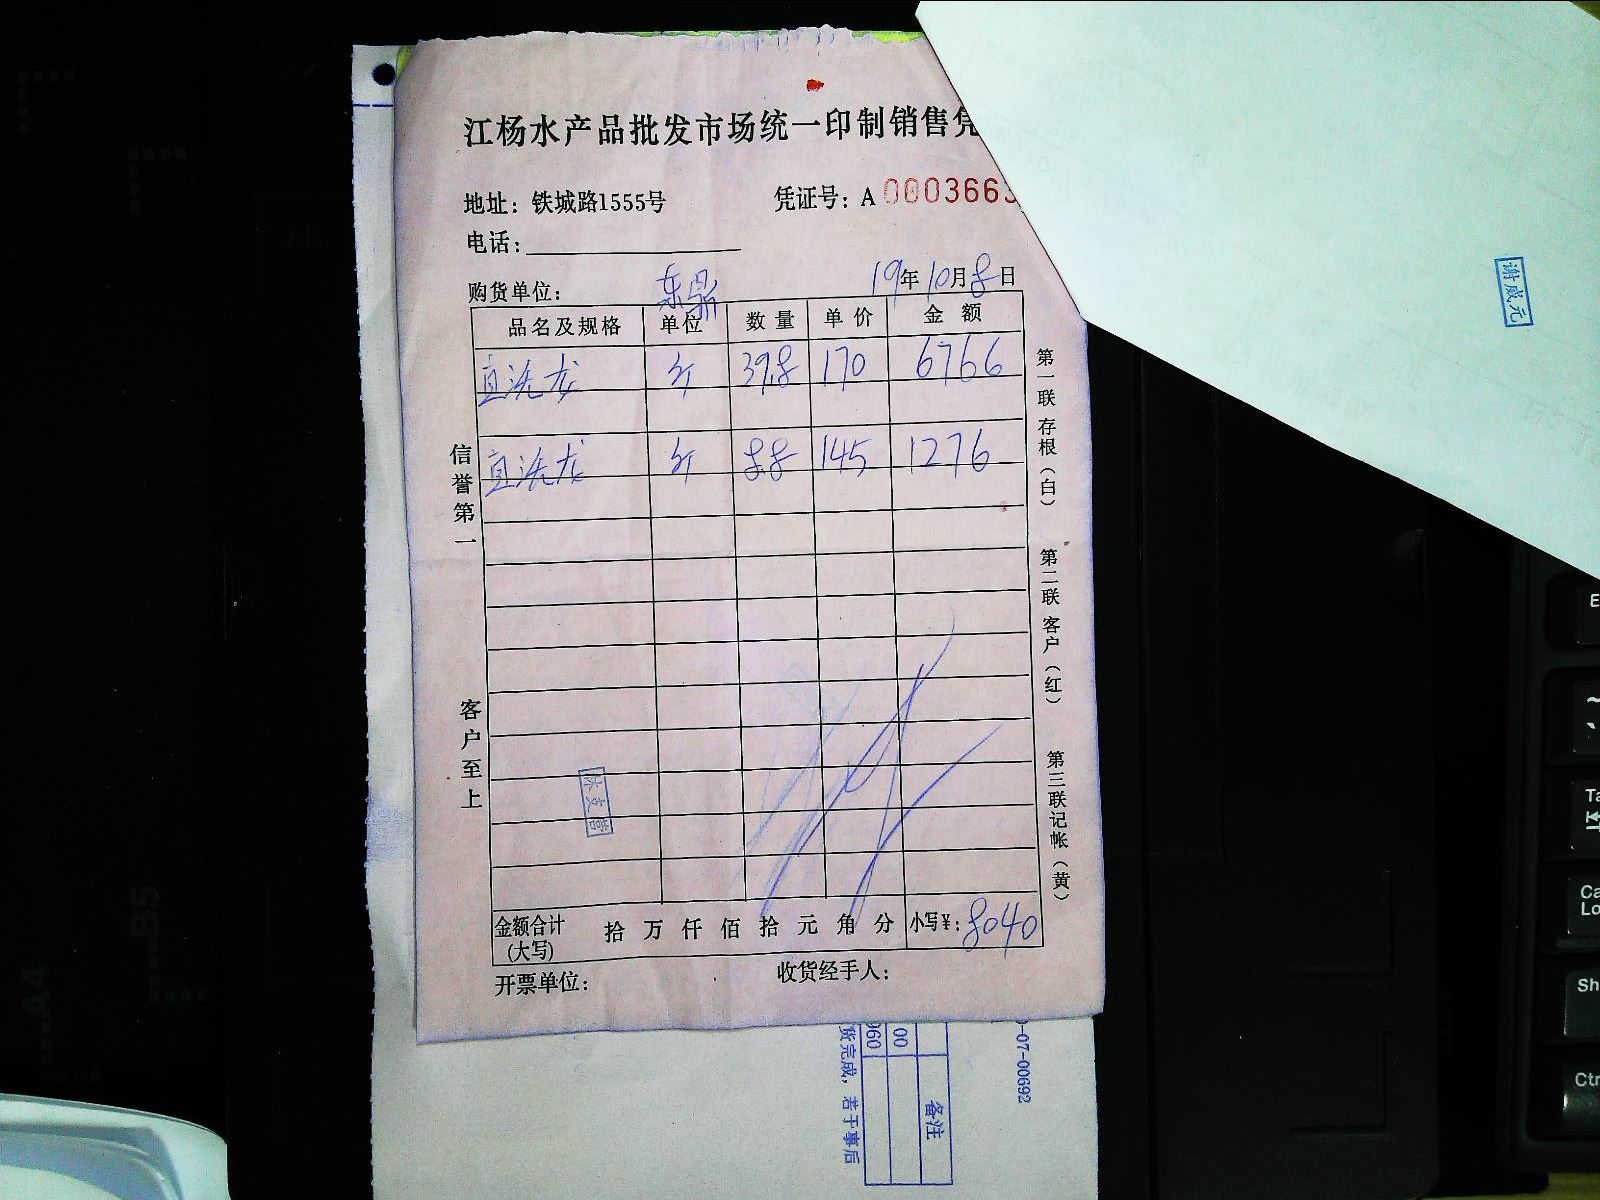 江杨水产品批发市场统一印制销售凭
地址：铁城路1555号
凭证号：A 0003663
电话：
购货单位： 东鼎
19年10月8日
品名及规格 单位 数量 单价 金额
直洗龙 斤 39.8 170 6766
直洗龙 斤 8.8 145 1276
信誉第一
客户至上
第一联 存根（白）
第二联 客户（红）
第三联 记帐（黄）
金额合计(大写) 拾 万 仟 佰 拾 元 角 分 小写¥：8040
开票单位：
收货经手人：
谢咸元
-07-00692
备注
00
960
货完成，若于事后
A4
B5
Ctr
Sh
Ca
Lo
Ta
E